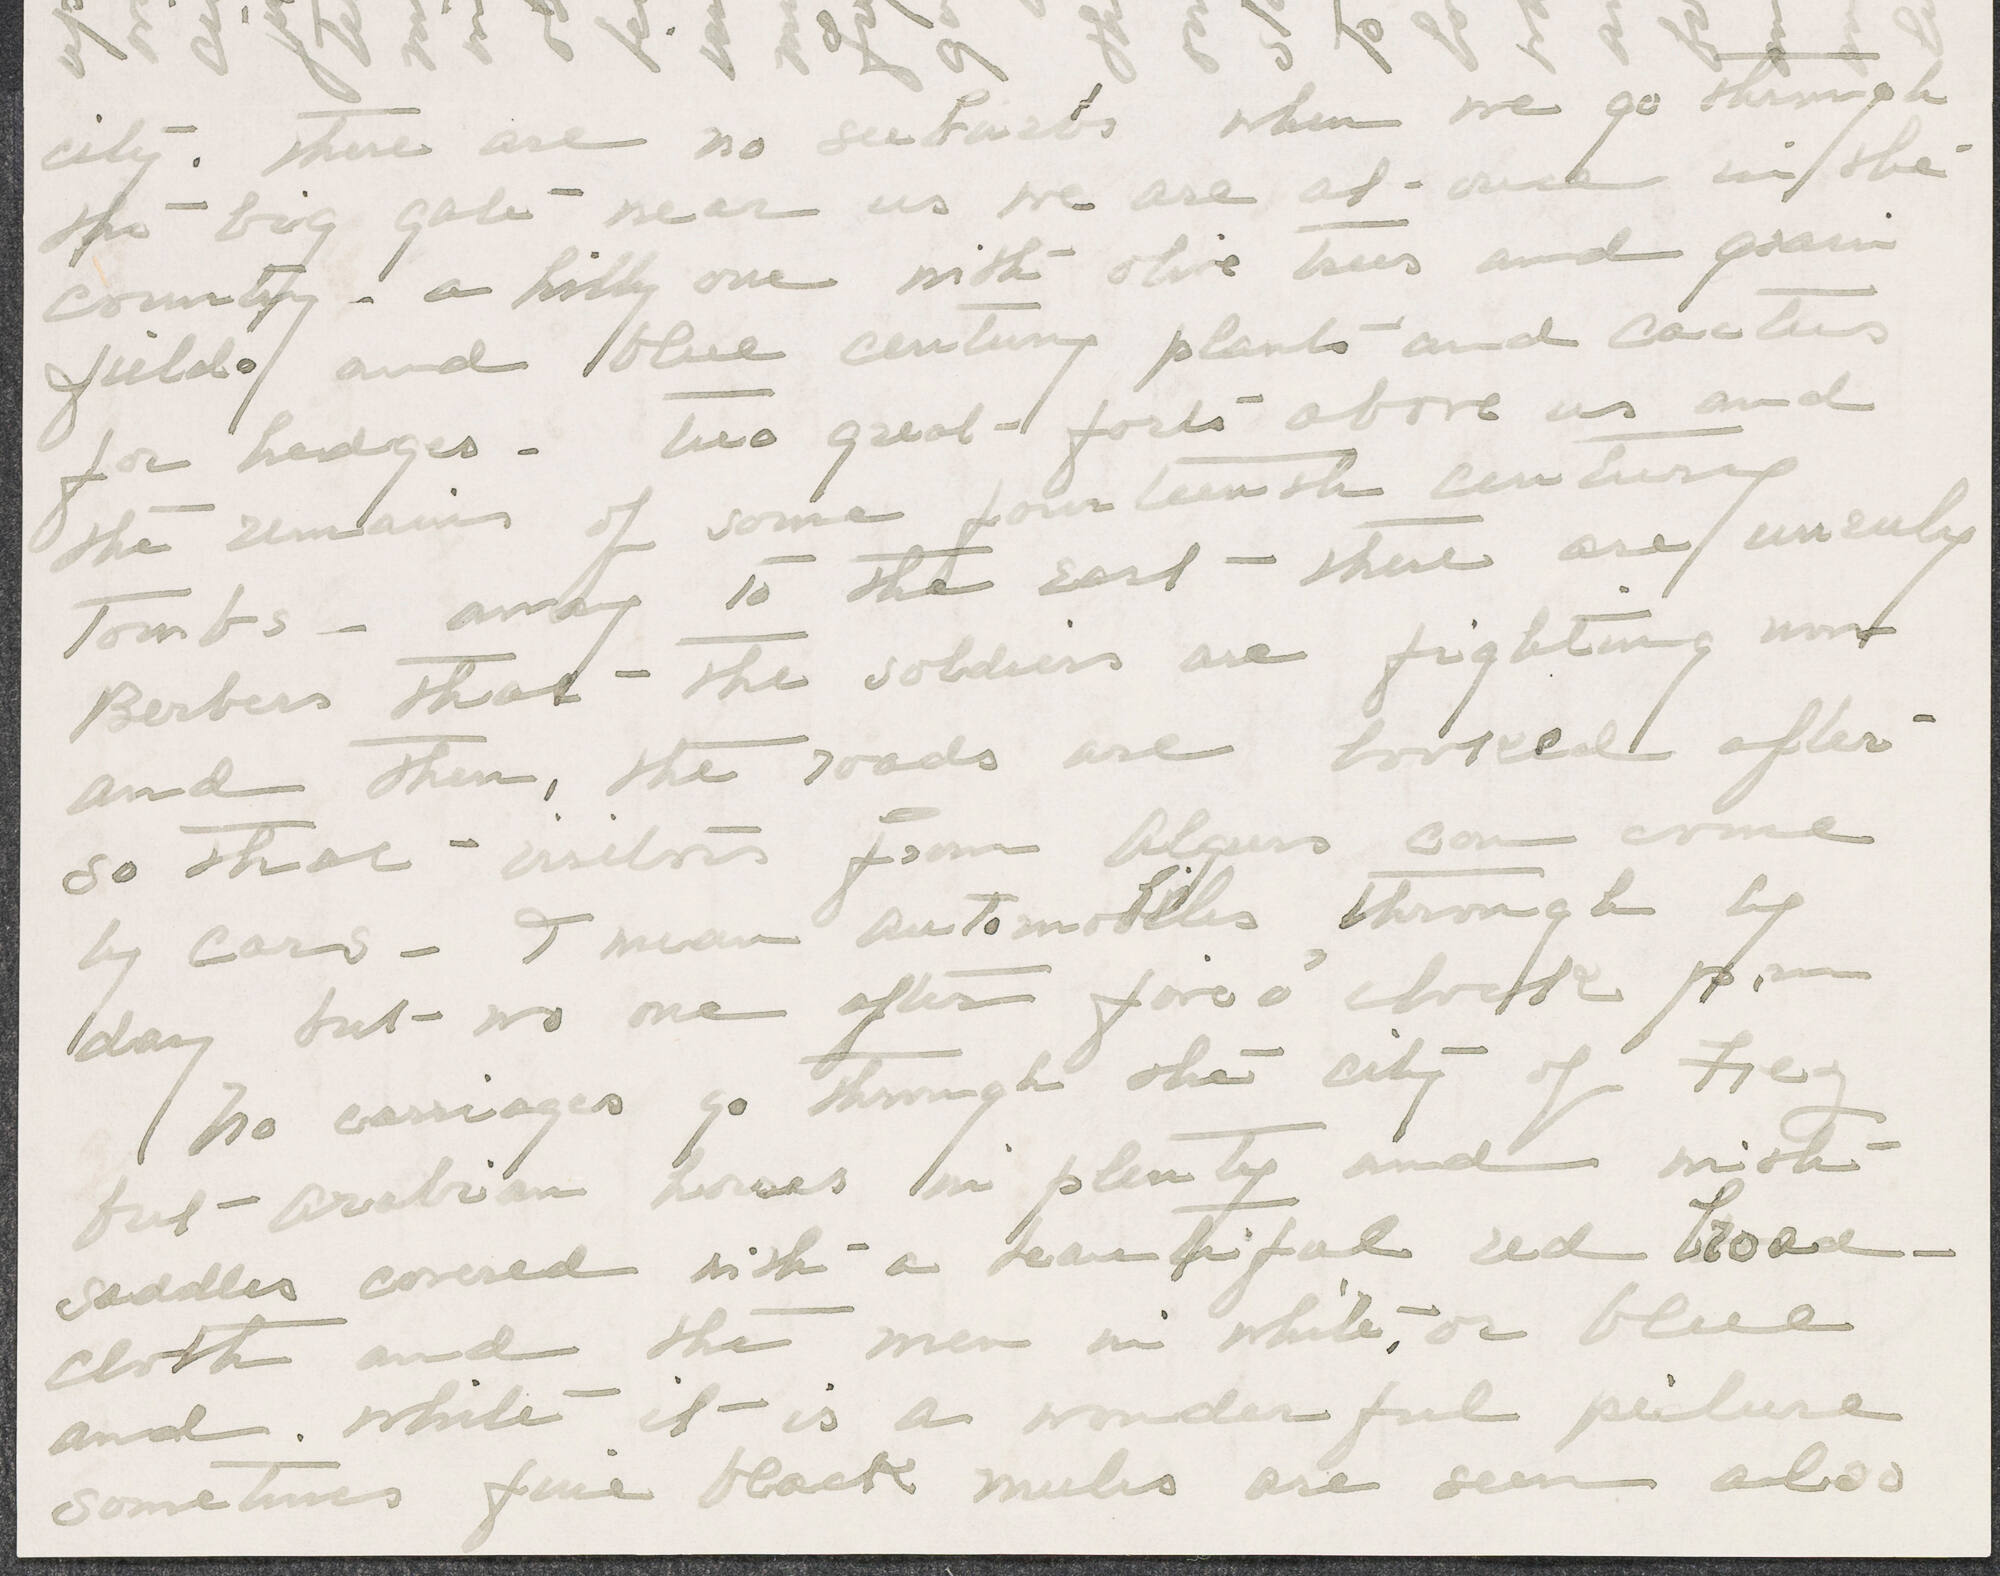 city. There are no suburbs when we go through
the big gate near us we are at-once in the
country - a hilly one with olive trees and grain
fields and blue century plants and cactus
for hedges - two great forts above us and
the remains of some fourteenth century
Tombs - away to the east - there are unruly
Berbers that the soldiers are fighting now
and then, the roads are looked after
so that visitors from Algiers can come
by cars - I mean automobiles through by
day but no one after five o'clock p.m
No carriages go through the city of Fez
but Arabian horses in plenty and with
saddles covered with a beautiful red broad-
cloth and the men in white, or blue
and white it is a wonderful picture
sometimes fine black mules are seen also